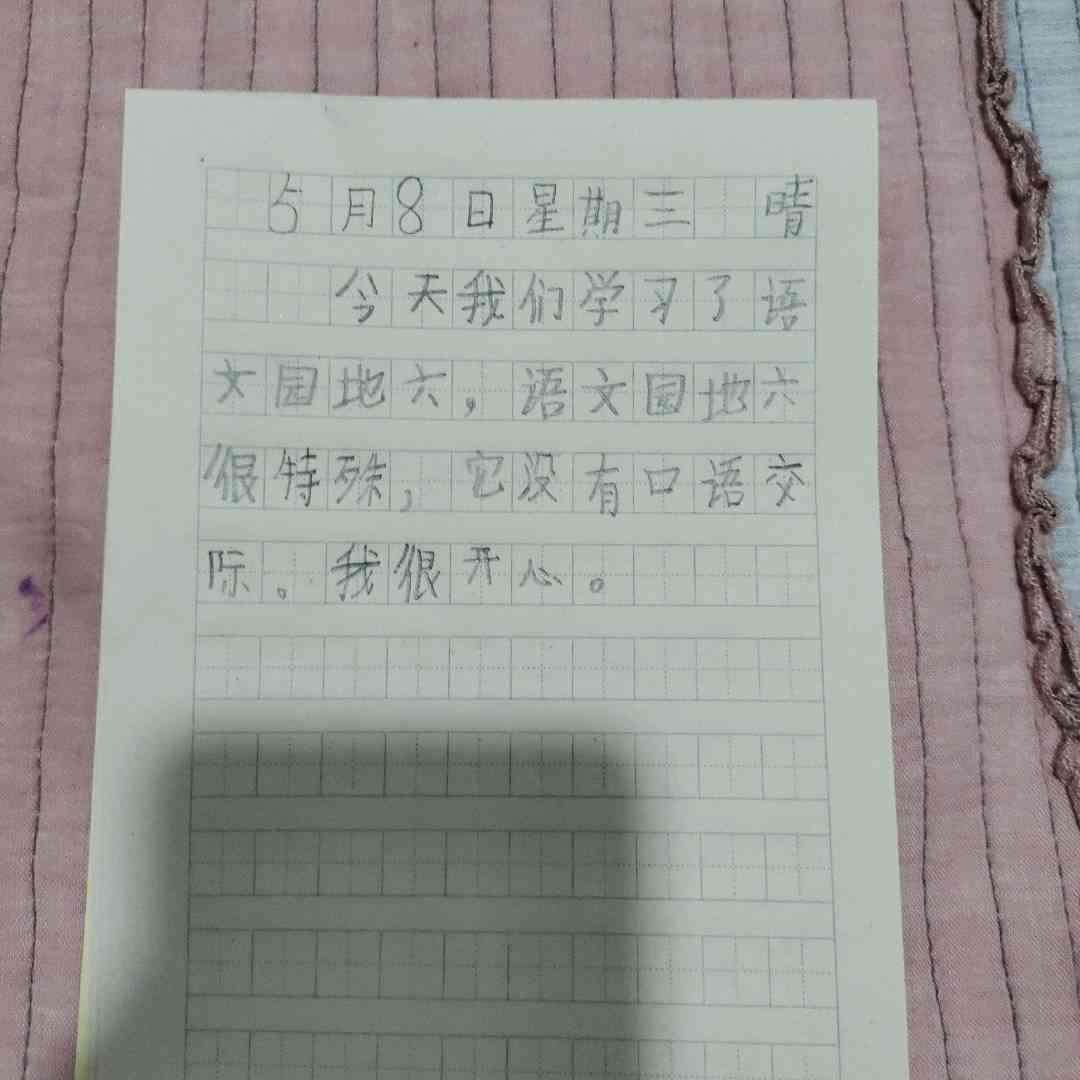 5月8日星期三 晴
今天我们学习了语
文园地六，语文园地六
很特殊，它没有口语交
际。我很开心。